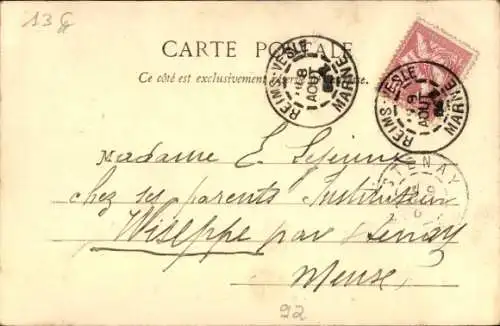 13 G
CARTE POSTALE
Ce côté est exclusivement réservé à l'adresse.
REIMS-VESLE
8
AOUT
MARNE
REIMS-VESLE
9
AOUT
MARNE
STENAY
Madame E. Lejeune
chez ses parents Instituteur
Wiseppe par Stenay
Meuse
92